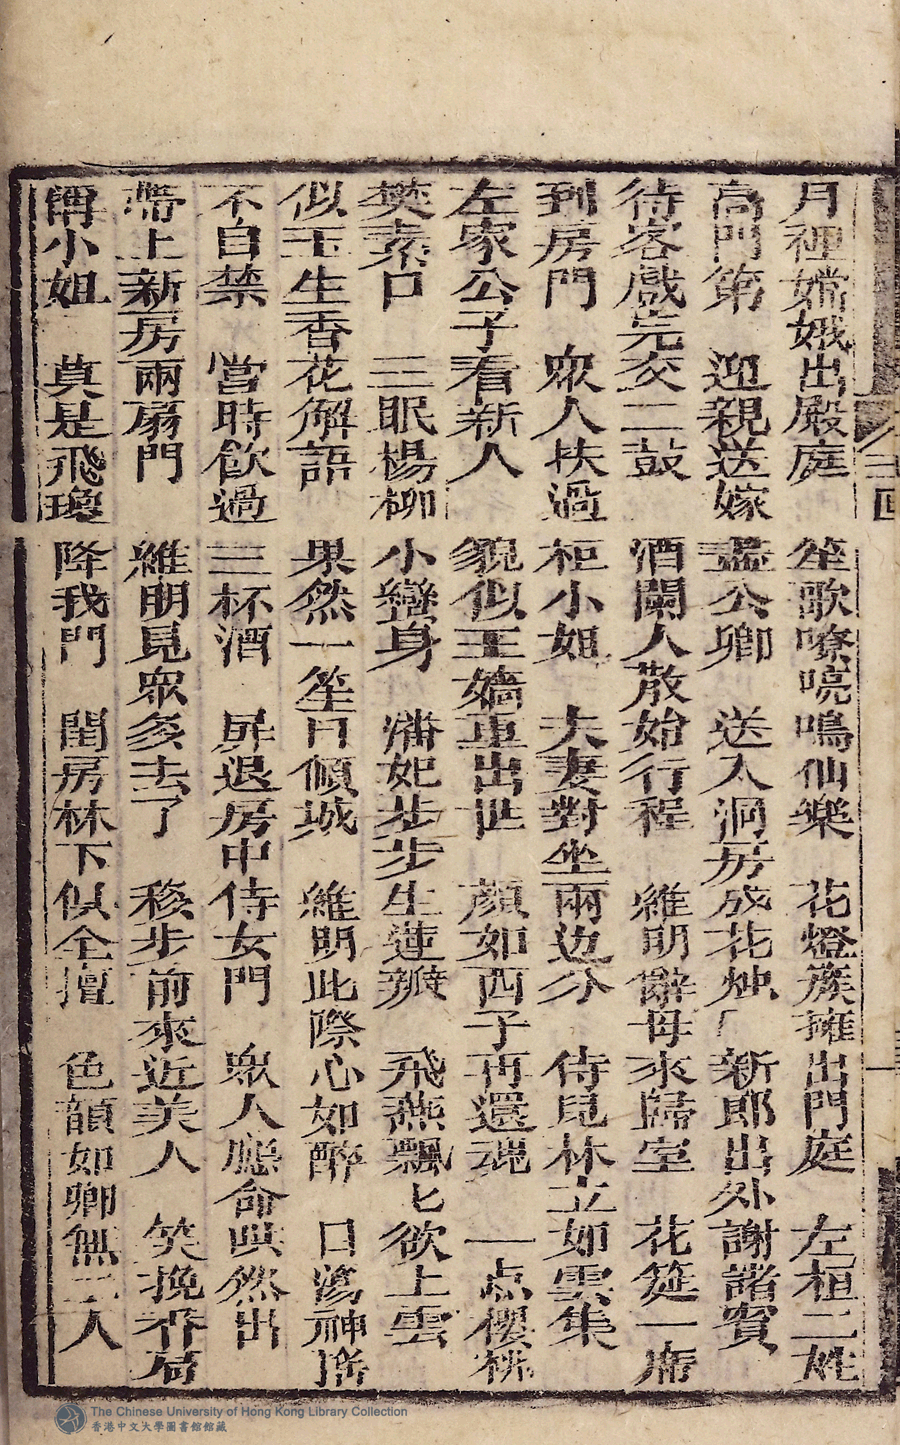 三回
月裡嫦娥出殿庭 笙歌嘹喨鳴仙樂 花燈簇擁出門庭 左桓二姓
高門第 迎親送嫁盡公卿 送入洞房成花烛 新郎出外謝諸賓
待客戲完交二鼓 酒闌人散始行程 維明辭母來歸室 花筵一席
到房門 衆人扶過桓小姐 夫妻對坐兩边分 侍兒林立如雲集
左家公子看新人 貌似王嬙重出世 顏如西子再還魂 一点櫻桃
樊素口 三眠楊柳小蠻身 潘妃步步生蓮瓣 飛燕飄匕欲上雲
似玉生香花解語 果然一笑曰傾城 維明此際心如醉 目蕩神搖
不自禁 當時飲過三杯酒 屏退房中侍女門 衆人應命哄然出
帶上新房兩扇門 維明見衆多去了 移步前來近美人 笑挽香肩
稱小姐 莫是飛瓊降我門 閨房林下似全擅 色韻如卿無二人
The Chinese University of Hong Kong Library Collection
香港中文大學圖書館館藏